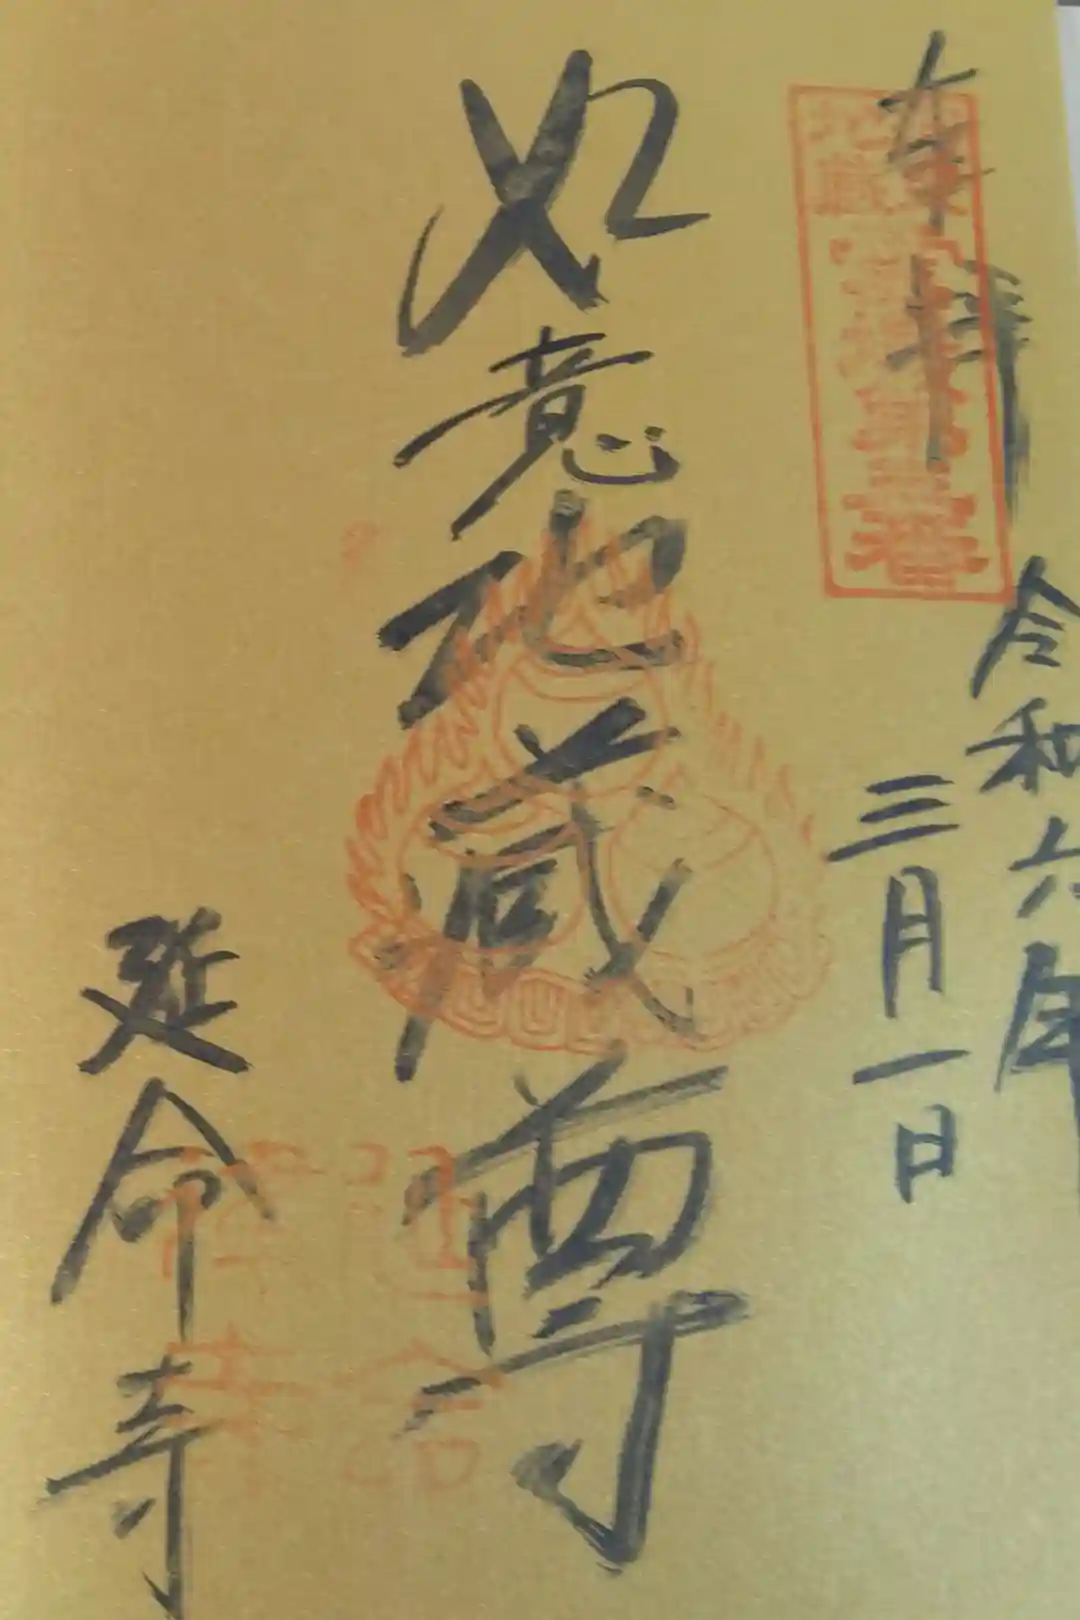 奉拝
令和六年
三月一日
如意地蔵尊
延命寺